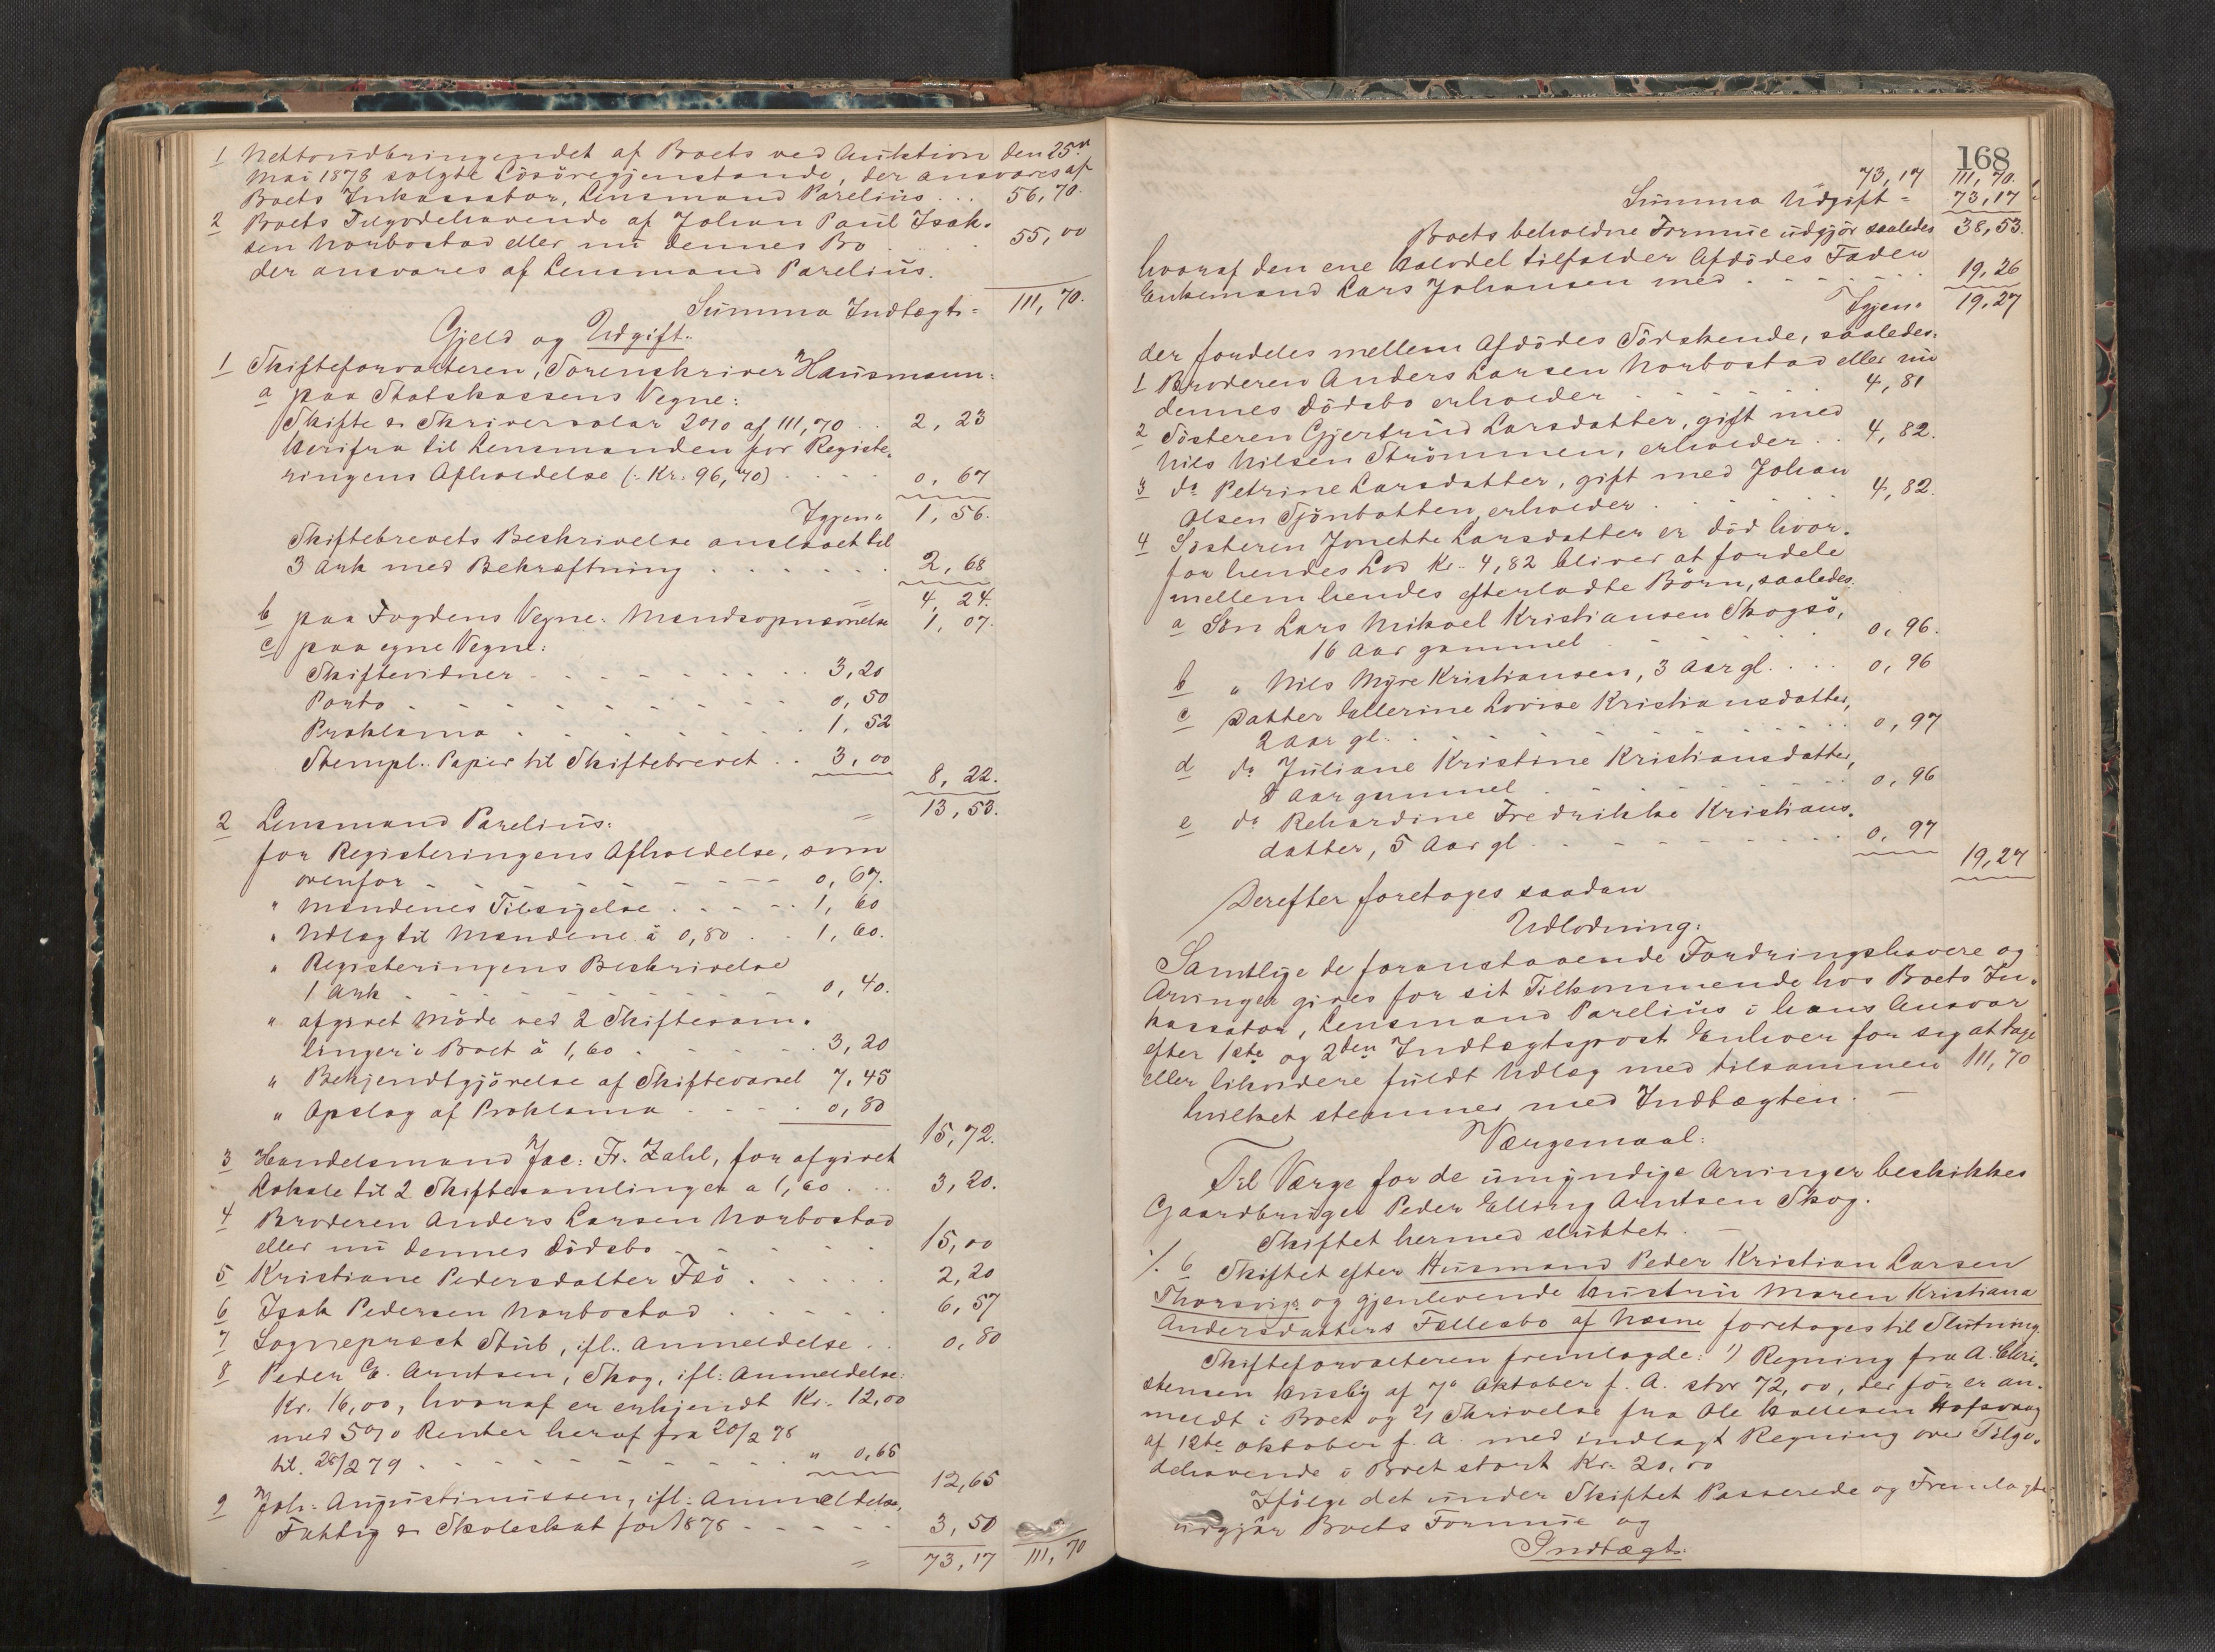 1 Nettoudbringendet af Boets ved Auktion den 25de
Mai 1878 solgte Lösöregjenstande, der ansvares af
Boets Inkassator, Lensmand Parelius . . . 56,70.
2 Boets Tilgodehavende af Johan Paul Isak-
sen Norbostad eller nu dennes Bo . . . 55,00
der ansvares af Lensmand Parelius.
Summa Indtægt = 111,70.
Gjeld og Udgift:
1 Skifteforvalteren, Sorenskriver Hausmann:
a paa Statskassens Vegne:
Skifte & Skriversalær 2% af 111,70 . . 2,23
herifra til Lensmanden for Registe-
ringens Afholdelse (: Kr. 96,40) . . . 0,67
Igjen " 1,56.
Skiftebrevets Beskrivelse anslaaet til
3 Ark med Bekræftning . . . . . 2,68
= 4,24.
b paa Fogdens Vegne: Mandsopnævnelse 1,07.
c paa egne Vegne:
Skiftevidner . . . . . . . 3,20
Porto . . . . . . . . . 0,50
Proklama . . . . . . . 1,52
Stempl. Papir til Skiftebrevet . . 3,00
8,22.
= 13,53.
2 Lensmand Parelius:
for Registeringens Afholdelse, som
ovenfor . . . . . . . 0,67.
" Mændenes Tilsigelse . . . . . 1,60
" Udlæg til Mændene à 0,80 . . 1,60.
" Registeringens Beskrivelse
1 Ark . . . . . . . . 0,40.
" afgivet Möde ved 2 Skiftesam-
linger i Boet à 1,60 . . . . . 3,20
" Bekjendtgjörelse af Skiftevarsel 7,45
" Opslag af Proklama . . . . 0,80
15,72.
3 Handelsmand Jac: Fr. Zahl, for afgivet
Lokale til 2 Skiftesamlinger a 1,60 . . . 3,20.
4 Broderen Anders Larsen Norbostad
eller nu dennes Dödsbo . . . . . 15,00
5 Kristiane Pedersdatter Fsö . . . . . 2,20
6 Isak Pedersen Norbostad . . . . . 6,57
7 Sogneprest Stub, ifl. Anmeldelse . . 0,80
8 Peder E. Arntsen, Skog, ifl: Anmeldelse:
Kr. 16,00, hvoraf er erkjendt Kr. 12,00
med 5% Renter heraf fra 20/2 78
til 28/2 79 . . . . . . . " 0,65
12,65
9 Joh: Augustinussen, ifl: Anmeldelse,
Fattig & Skoleskat for 1878 . . . . . 3,50
= 73,17 111,70
168
73,17 111,70.
Summa Udgift = 73,17
Boets beholdne Formue udgjör saaledes 38,53.
hvoraf den ene Halvdel tilfalder Afdödes Fader
Enkemand Lars Johansen med . . . . . 19,26
Igjen " 19,27
der fordeles mellem Afdödes Södskende, saaledes:
1 Broderen Anders Larsen Norbostad eller nu
dennes Dödsbo erholder . . . . . . 4,81
2 Sösteren Gjertrud Larsdatter, gift med
Nils Nilsen Strömmen, erholder . . 4,82.
3 do Petrine Larsdatter, gift med Johan
Olsen Sjönbotten, erholder . . . . . 4,82.
4 Sösteren Jonette Larsdatter er död hvor-
for hendes Lod Kr. 4,82 bliver at fordele
mellem hendes efterladte Börn, saaledes:
a Sön Lars Mikael Kristiansen Skogsö,
16 Aar gammel . . . . . 0,96.
b " Nils Myre Kristiansen, 3 Aar gl. . . . 0,96
c Datter Ellerine Lovise Kristiansdatter,
2 Aar gl. . . . . . . . . 0,97
d do Juliane Kristine Kristiansdatter,
8 Aar gammel . . . . . . . 0,96
e do Rehardine Fredrikke Kristians-
datter, 5 Aar gl . . . . . . . . 0,97
19,27
Derefter foretages saadan
Udlodning:
Samtlige de foranstaaende Fordringshavere og
Arvinger gives for sit Tilkommende hos Boets In-
kassator, Lensmand Parelius i hans Ansvar
efter 1ste og 2den Indtægtspost Enhver for sig at tage
eller likvidere fuldt Udlæg med tilsammen 111,70
hvilket stemmer med Indtægten. —
Værgemaal:
Til Værge for de umyndige Arvinger beskikkes
Gaardbruger Peder Elling Arntsen Skog.
Skiftet hermed sluttet. —
%. 6 Skiftet efter Husmand Peder Kristian Larsen
Thorsvig og gjenlevende Hustru Maren Kristiana
Andersdatters Fællesbo af Næsne foretoges til Slutning.
Skifteforvalteren fremlagde: 1) Regning fra A. Chri-
stensen Husby af 7de Oktober f. A. stor 72,00, der för er an-
meldt i Boet og 2) Skrivelse fra Ole Hallesen Hafsvaag
af 12te Oktober f. A. med indlagt Regning over Tilgo-
dehavende i Boet stort Kr. 20,00
Ifölge det under Skiftet Passerede og Fremlagte
udgjör Boets Formue og
Indtægt: